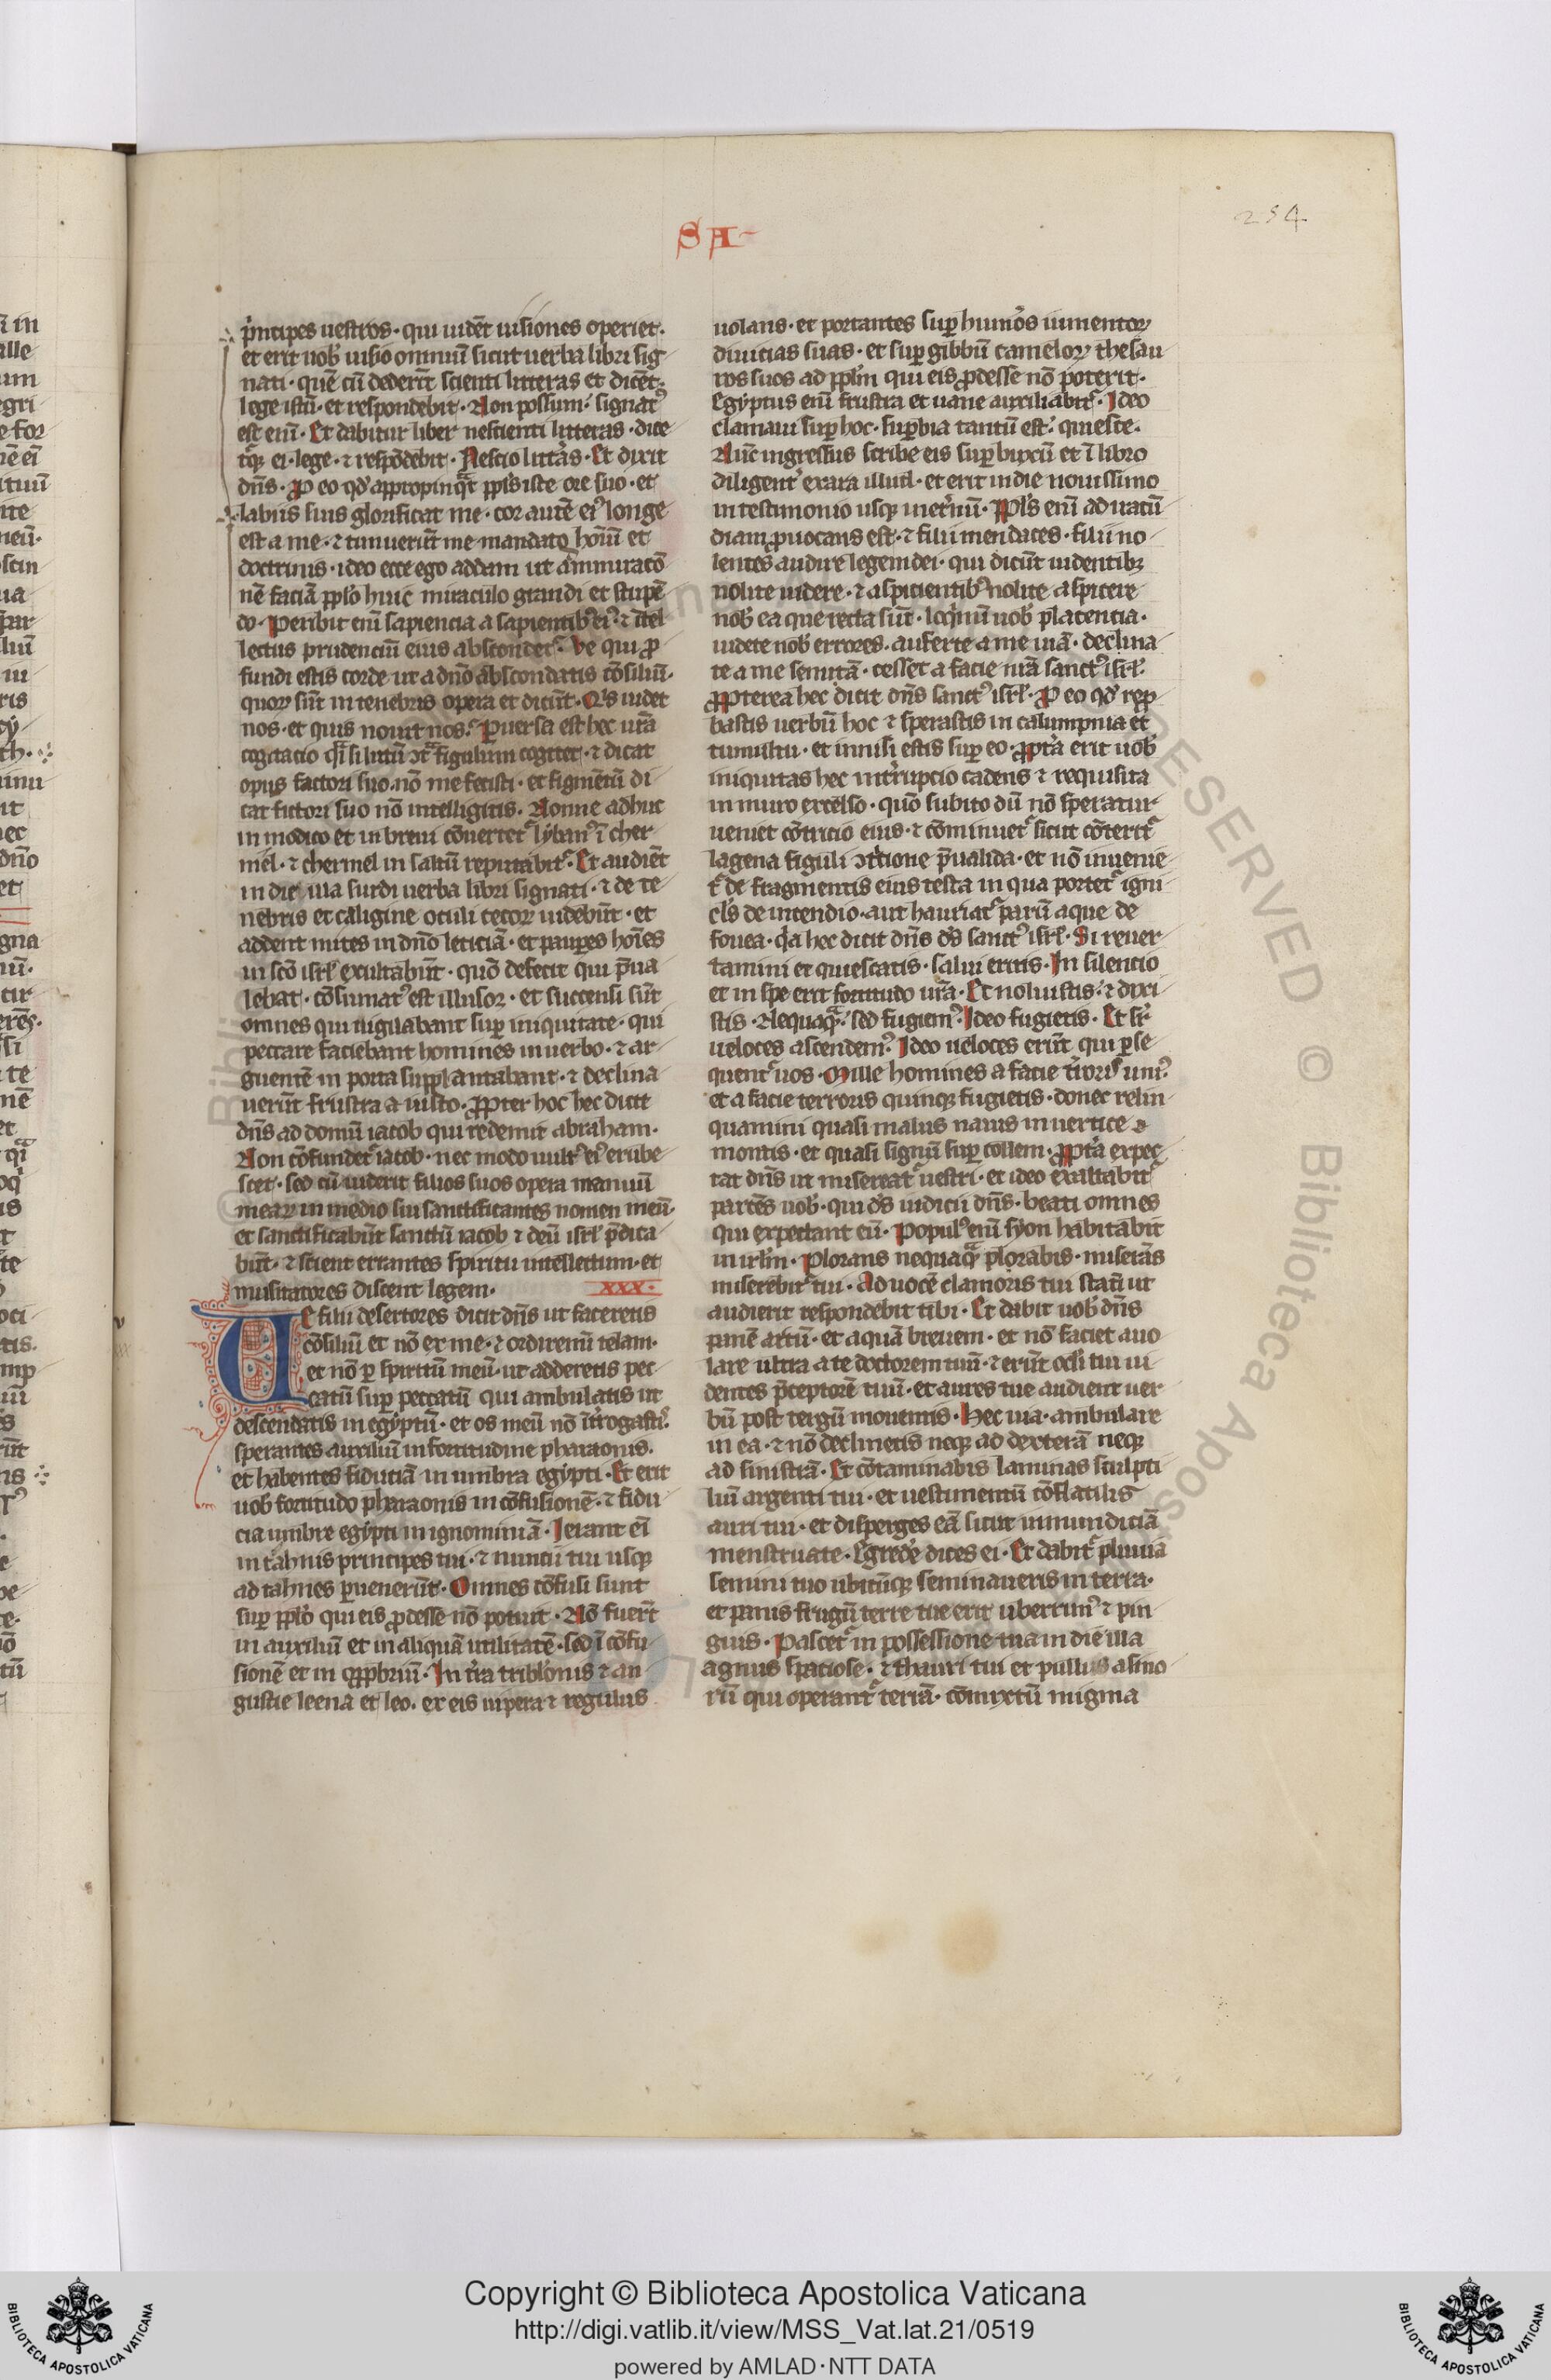 SA
254
p̾ncipes uestros · qui uidēt uisiones operiet ·
et erit uob̾ uisio omniū sicut uerba libri sig
nati · quē cū dederīt scienti litteras et dicēt ·
lege istū · et respondebit · Non possum · signatꝰ
est enī · Et dabitur liber nescienti litteras · dice
tꝙ ei · lege · ⁊ respōdebit · Nescio litt̾as · Et dixit
dn̄s · P eo qd̾ appropinq̄t ppl̾s iste ore suo · et
labiis suis glorificat me · cor autē eiꝰ longe
est a me · ⁊ timuerūt me mandato hoīū et
doctrinis · ideo ecce ego addam ut āmiratō
nē faciā ppl̾o huic miraculo grandi et stupē
do · Peribit enī sapiencia a sapientibꝰ eiꝰ · ⁊ ītel
lectus prudenciū eius abscondet᷑ · Ve qui ꝓ
fundi estis corde ut a dn̄o abscondatis cōsiliū ·
quoꝝ sūt in tenebris opera et dicūt · Qͥs uidet
nos · et quis nouit nos · Puersa est hec ur̄a
cogitacio q̄i si lutū ↄt̄ figulum cogitet · ⁊ dicat
opus factori suo · nō me fecisti · et figmētū di
cat fictori suo nō intelligitis · Nonne adhuc
in modico et in breui cōuertet᷑ lybanꝰ ī cher
mel · ⁊ chermel in saltū reputabit᷑ · Et audiēt
in die illa surdi uerba libri signati · ⁊ de te
nebris et caligine oculi cecoꝝ uidebūt · et
addent mites in dn̄o leticiā · et paupes hoīes
in scō isrl̾ exultabūt · quō defecit qui p̄ua
lebat · cōsumatꝰ est illusor · et succensi sūt
omnes qui uigilabant suꝑ iniquitate · qui
peccare faciebant homines in uerbo · ⁊ ar
guentē in porta supplantabant · ⁊ declina
uerūt frustra a iusto · ꝓpter hoc hec dicit
dn̄s ad domū iacob qui redemit abraham ·
Non cōfundet᷑ iacob · nec modo uultꝰ eiꝰ erube
scet · sed cū uiderit filios suos opera manuū
mearꝝ in medio sui sanctificantes nomen meū ·
et sanctificabūt sanctū iacob ⁊ deū isrl̾ p̄dica
būt · ⁊ scient errantes spiritu intellectum · et
musitatores discent legem · xxx ·
Ue filii desertores dicit dn̄s ut faceretis
cōsiliū et nō ex me · ⁊ ordiremī telam ·
et nō ꝑ spiritū meū · ut adderetis pec
catū suꝑ peccatū qui ambulatis ut
descendatis in egyptū · et os meū nō īt̾rogastiꝰ
sperantes auxiliū in fortitudine pharaonis ·
et habentes fiduciā in umbra egypti · Et erit
uob fortitudo pharaonis in cōfusionē · ⁊ fidu
cia umbre egypti in ignominiā · Ierant eī
in tahnis principes tui · ⁊ nuncii tui usqꝫ
ad tahnes ꝑuenerūt · Omnes cōfusi sunt
suꝑ ppl̾o qui eis ꝓdesse nō potuit · Nō fuerīt
in auxiliū et in aliquā utilitatē · sed ī cōfu
sionē et in opꝓbriū · In t̾ra tribl̾onis ⁊ an
gustie leena et leo · ex eis uipera ⁊ regulus
uolans · et portantes suꝑ hum̾os iumentoꝝ
diuicias suas · et suꝑ gibbū cameloꝝ thesau
ros suos ad ppl̾m qui eis ꝓdesse nō poterit ·
Egyptus enī frustra et uane auxiliabit᷑ · Ideo
clamaui suꝑ hoc · suꝑbia tantū est · quiesce ·
Nūc ingressus scribe eis suꝑ buxū et ī libro
diligent̾ exara illud · et erit in die nouissimo
in testimonio usqꝫ inet̾nū · Ppl̾s enī ad iracū
diam ꝓuocans est · ⁊ filii mendaces · filii no
lentes audire legem dei · qui dicūt uidentibꝫ
nolite uidere · ⁊ aspicientibꝰ nolite aspicere
nob̾ ea que recta sūt · loqͥmī nob̾ placencia ·
uidete nob̾ errores · auferte a me uiā · declina
te a me semitā · cesset a facie nr̄a sanctꝰ isrl̾ ·
ꝓpterea hec dicit dn̄s sanctꝰ isrl̾ · P eo qd̾ repꝛo
bastis uerbū hoc ⁊ sperastis in calumpnia et
tumultu · et innisi estis suꝑ eo · ꝓpt̾a erit uob̾
iniquitas hec int̾rupcio cadens ⁊ requisita
in muro excelso · quō subito dū nō speratur
ueniet cōtricio eius · ⁊ cōminuet᷑ sicut cōterit᷑
lagena figuli ↄt̾tione p̄ualida · et nō inuenie
t᷑ de fragmentis eius testa in qua portet᷑ igni
cl̾s de incendio · aut hauriat᷑ parū aque de
fouea · q̾a hec dicit dn̄s ds̾ sanctꝰ isrl̾ · Si reuer
tamini et quiescatis · salui eritis · In silencio
et in spe erit fortitudo ur̄a · Et noluistis · ⁊ dixi
stis · Nequaq̄ · sed fugiemꝰ · Ideo fugietis · Et sr̾
ueloces ascendemꝰ · Ideo ueloces erūt qui ꝑse
quent᷑ uos · Mille homines a facie t̾roris uniꝰ ·
et a facie terroris quinqꝫ fugietis · donec relin
quamini quasi malus nauis in uertice
montis · et quasi signū suꝑ collem · ꝓpt̾a expec
tat dn̄s ut misereat᷑ uestri · et ideo exaltabit᷑
parcēs uob̾ · qui ds̾ iudicii dn̄s · beati omnes
qui expectant eū · Populꝰ enī syon habitabit
in irl̾m · Plorans nequaq̄ plorabis · miserās
miserebit᷑ tui · Ad uocē clamoris tui statī ut
audierit respondebit tibi · Et dabit uob̾ dn̄s
panē artū · et aquā breuem · et nō faciet auo
lare ultra a te doctorem tuū · ⁊ erūt ocl̾i tui ui
dentes p̄ceptorē tuū · et aures tue audient uer
bū post tergū monentis · Hec uia · ambulate
in ea · ⁊ nō declinetis neqꝫ ad dexterā neqꝫ
ad sinistrā · Et cōtaminabis laminas sculpti
liū argenti tui · et uestimentū cōflatilis
auri tui · et disperges eā sicut inmundiciā
menstruate · Egrede̾ dices ei · Et dabit᷑ pluuia
semini tuo ubicūqꝫ seminaueris in terra ·
et panis frugū terre tue erit uberrimꝰ ⁊ pin
guis · Pascet᷑ in possessione tua in die illa
agnus spaciose · ⁊ thauri tui et pullus asino
rū qui operant᷑ terrā · cōmixtū migma
Copyright © Biblioteca Apostolica Vaticana
http://digi.vatlib.it/view/MSS_Vat.lat.21/0519
powered by AMLAD · NTT DATA
BIBLIOTECA APOSTOLICA VATICANA
BIBLIOTECA APOSTOLICA VATICANA